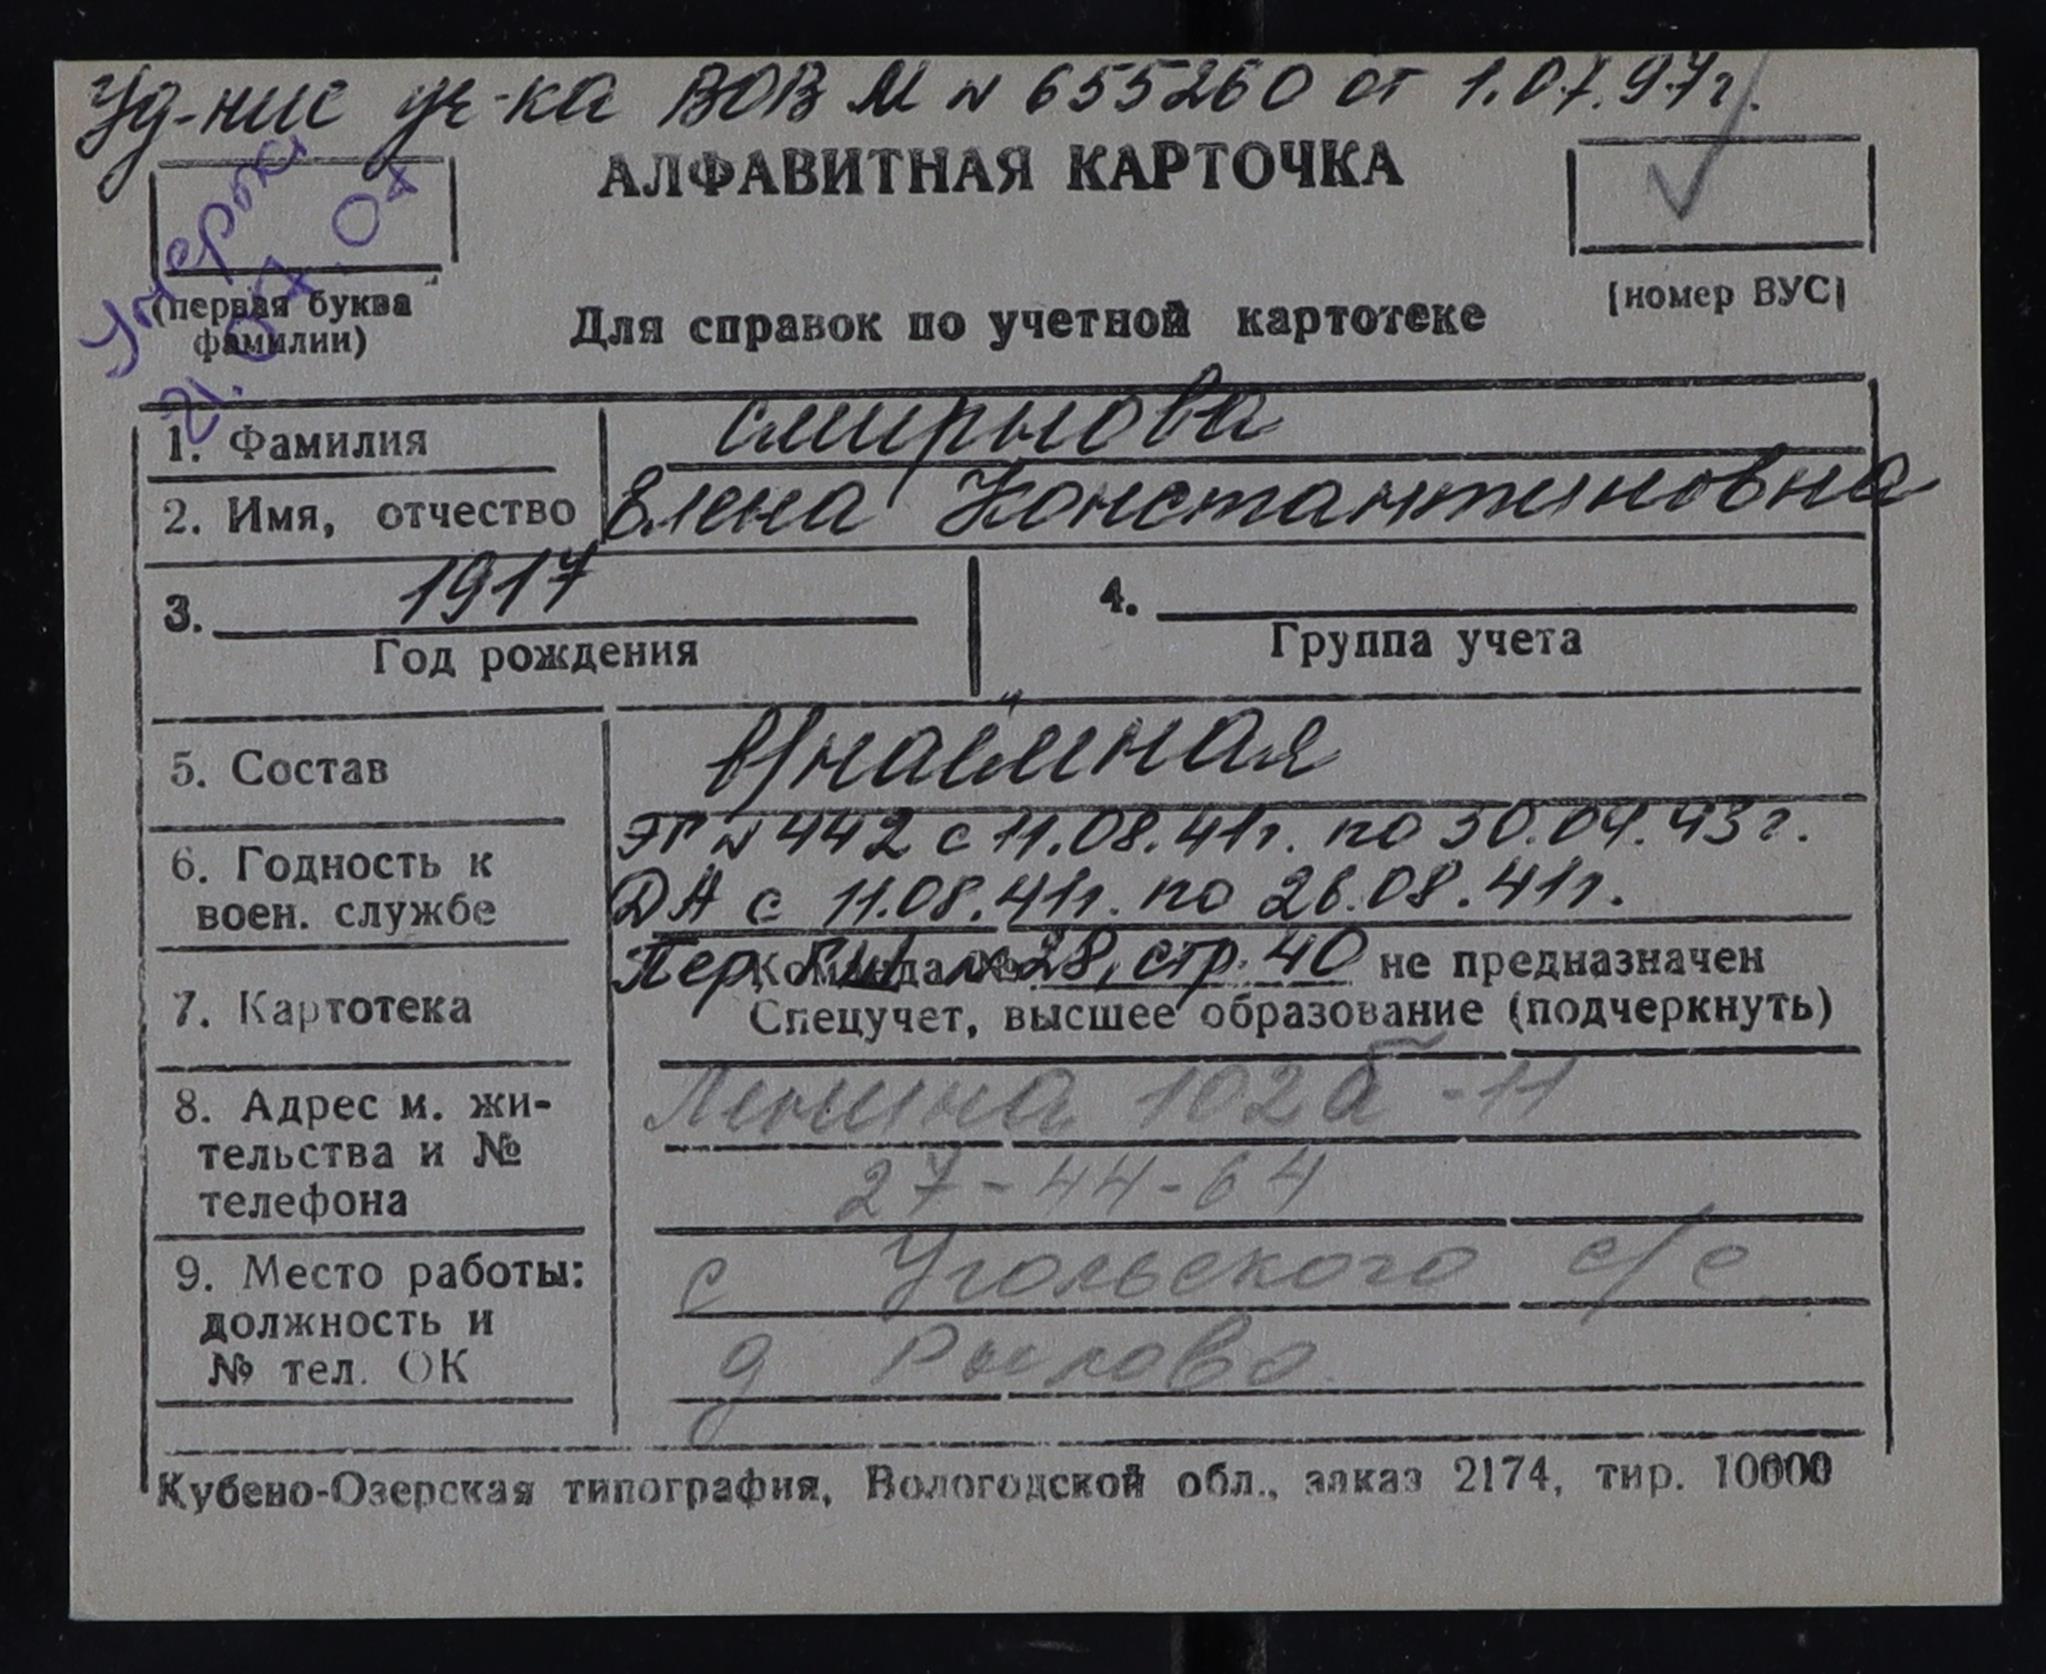 Уд-ние уч-ка ВОВ М № 655260 от 1.07.97г.
Умерла
21.07.04
АЛФАВИТНАЯ КАРТОЧКА
(первая буква
фамилии)
(номер ВУС)
Для справок по учетной картотеке
1. Фамилия Смирнова
2. Имя, отчество Елена Константиновна
3. 1917 4.
Год рождения Группа учета
5. Состав в/наёмная
6. Годность к ЭГ № 442 с 11.08.41г. по 30.09.43г.
воен. службе ДА с 11.08.41г. по 26.08.41г.
Пер. № 28, стр. 40
Команда № не предназначен
7. Картотека Спецучет, высшее образование (подчеркнуть)
8. Адрес м. жи- Ленина 102б-11
тельства и №
телефона 27-44-64
9. Место работы: с Угольского с/с
должность и
№ тел. ОК д Рылово
Кубено-Озерская типография, Вологодской обл., заказ 2174, тир. 10000